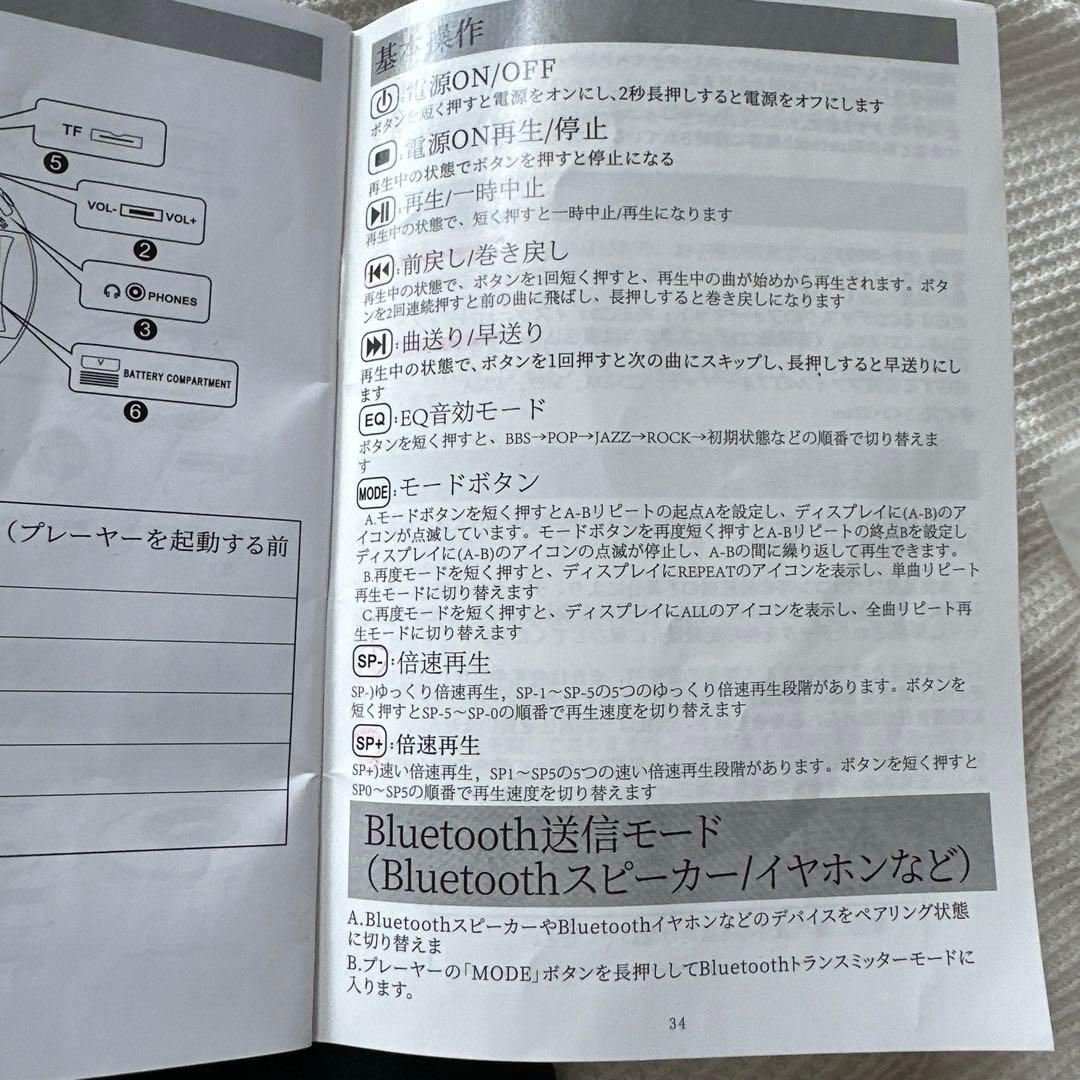 TF
❺
VOL- VOL+
❷
PHONES
❸
V
BATTERY COMPARTMENT
❻
（プレーヤーを起動する前
基本操作
:電源ON/OFF
ボタンを短く押すと電源をオンにし、2秒長押しすると電源をオフにします
:電源ON再生/停止
再生中の状態でボタンを押すと停止になる
:再生/一時中止
再生中の状態で、短く押すと一時中止/再生になります
:前戻し/巻き戻し
再生中の状態で、ボタンを1回短く押すと、再生中の曲が始めから再生されます。ボタ
ンを2回連続押すと前の曲に飛ばし、長押しすると巻き戻しになります
:曲送り/早送り
再生中の状態で、ボタンを1回押すと次の曲にスキップし、長押しすると早送りにし
ます
EQ:EQ音効モード
ボタンを短く押すと、BBS→POP→JAZZ→ROCK→初期状態などの順番で切り替えま
す
MODE:モードボタン
A.モードボタンを短く押すとA-Bリピートの起点Aを設定し、ディスプレイに(A-B)のア
イコンが点滅しています。モードボタンを再度短く押すとA-Bリピートの終点Bを設定し
ディスプレイに(A-B)のアイコンの点滅が停止し、A-Bの間に繰り返して再生できます。
B.再度モードを短く押すと、ディスプレイにREPEATのアイコンを表示し、単曲リピート
再生モードに切り替えます
C.再度モードを短く押すと、ディスプレイにALLのアイコンを表示し、全曲リピート再
生モードに切り替えます
SP-:倍速再生
SP-)ゆっくり倍速再生，SP-1～SP-5の5つのゆっくり倍速再生段階があります。ボタンを
短く押すとSP-5～SP-0の順番で再生速度を切り替えます
SP+:倍速再生
SP+)速い倍速再生，SP1～SP5の5つの速い倍速再生段階があります。ボタンを短く押すと
SP0～SP5の順番で再生速度を切り替えます
Bluetooth送信モード
（Bluetoothスピーカー/イヤホンなど）
A.BluetoothスピーカーやBluetoothイヤホンなどのデバイスをペアリング状態
に切り替えま
B.プレーヤーの「MODE」ボタンを長押ししてBluetoothトランスミッターモードに
入ります。
34